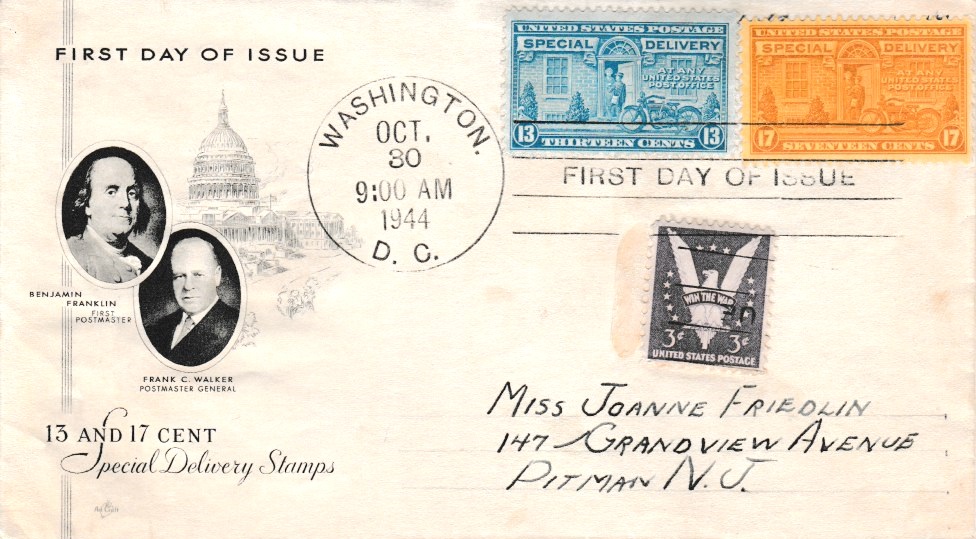 FIRST DAY OF ISSUE
BENJAMIN
FRANKLIN
FIRST
POSTMASTER
FRANK C. WALKER
POSTMASTER GENERAL
13 AND 17 CENT
Special Delivery Stamps
WASHINGTON.
OCT.
30
9:00 AM
1944
D. C.
UNITED STATES POSTAGE
SPECIAL DELIVERY
AT ANY
UNITED STATES
POST OFFICE
13 13
THIRTEEN CENTS
UNITED STATES POSTAGE
SPECIAL DELIVERY
AT ANY
UNITED STATES
POST OFFICE
17 17
SEVENTEEN CENTS
FIRST DAY OF ISSUE
WIN THE WAR
3¢ 3¢
UNITED STATES POSTAGE
MISS JOANNE FRIEDLIN
147 GRANDVIEW AVENUE
PITMAN N.J.